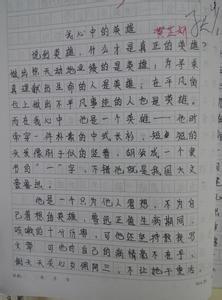 我心中的英雄
说到英雄，什么才是真正的英雄？
做出惊天动地业绩的是英雄，为寻求
真理献出生命的人是英雄，在平凡的
位上做出不平凡事绩的人也是英雄。
而在我心中，他是一个英雄——他时
常穿一件朴素的中式长衫，短短的
头发像刷子似的竖着，胡须成一个隶
书的"一"字，不错他就是我国大文
豪鲁迅。
他是一个只为他人着想，不为自
己着想的英雄，鲁迅正值生病期间，
咳嗽的十个厉害，可他还坚持教我写
文章，可他对自己的病情毫不在乎，